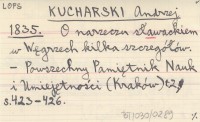 LOPS
KUCHARSKI Andrzej
1835. O narzeczu sławackiem
w Węgrzech kilka szczegółów.
- Powszechny Pamiętnik Nauk
i Umiejętności (Kraków) cz.
s. 423-426.